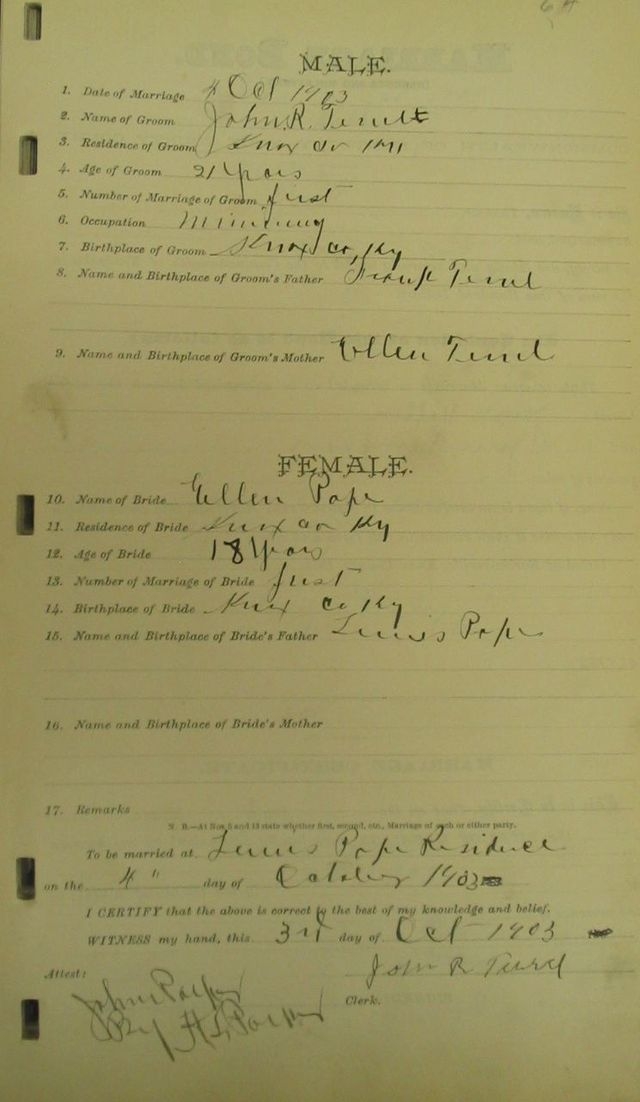 MALE.
1. Date of Marriage 4 Oct 1903
2. Name of Groom John R. Terrell
3. Residence of Groom Knox co Ky
4. Age of Groom 21 Years
5. Number of Marriage of Groom first
6. Occupation
7. Birthplace of Groom Knox co, Ky
8. Name and Birthplace of Groom's Father Frank Terrel
9. Name and Birthplace of Groom's Mother Ellen Terrel
FEMALE.
10. Name of Bride Ellen Pope
11. Residence of Bride Knox co Ky
12. Age of Bride 18 Years
13. Number of Marriage of Bride first
14. Birthplace of Bride Knox co, Ky
15. Name and Birthplace of Bride's Father Lewis Pope
16. Name and Birthplace of Bride's Mother
17. Remarks
N. B.—At Nos 5 and 13 state whether first, second, etc., Marriage of each or either party.
To be married at Lewis Pope Residence
on the 4" day of October 1903
I CERTIFY that the above is correct to the best of my knowledge and belief.
WITNESS my hand, this 3rd day of Oct 1903
John R Terrel
Attest:
John Parker
Clerk.
By H L Parker